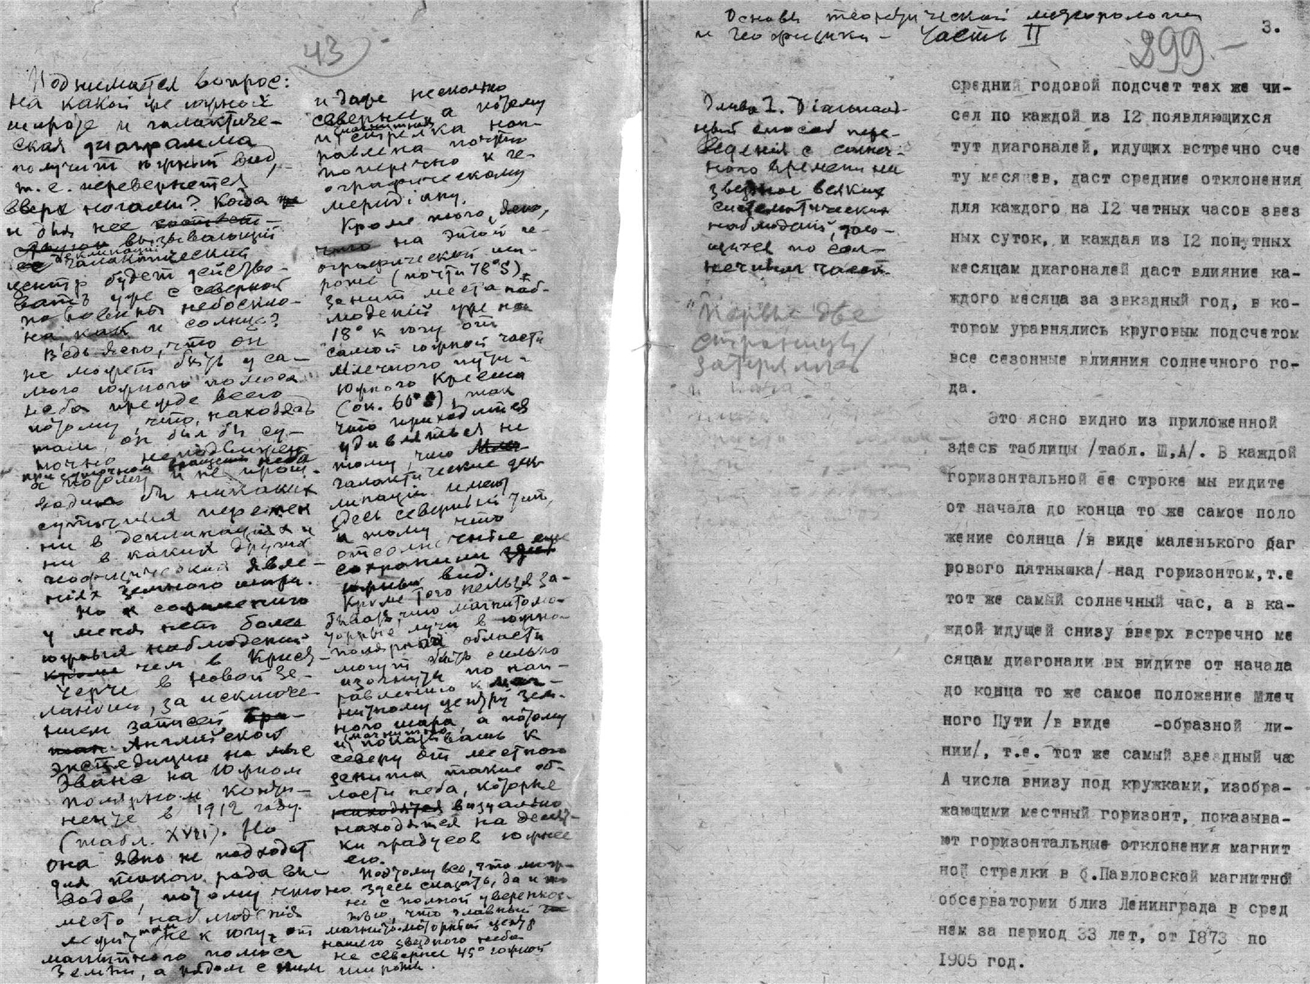 43
Поднимается вопрос:
на какой же южной
широте и галактиче-
ская диаграмма
получит южный вид,
т.е. перевернется
вверх ногами? Когда
и для нее
вызывающий
галактический
центр будет действо-
вать уже с северной
половины небоскло-
на как и солнце?
Ведь ясно, что он
не может быть у са-
мого южного полюса
неба прежде всего
потому, что, находясь
там, он был бы су-
точно неподвижен
при суточном вращении неба
а потому и не произ-
водил бы никаких
суточных перемен
ни в деклинациях и
ни в каких других
геофизических явле-
ниях земного шара.
Но к сожалению
у меня нет более
южных наблюдений
кроме чем в Крист-
черче в Новой Зе-
ландии, за исключе-
нием записей
Английской
экспедиции на мысе
Эванс на Южном
полярном конти-
ненте в 1912 году.
(табл. XVII). Но
она явно не подходит
для такого рода вы-
водов, потому что
место наблюдения
лежит там же к югу от
магнитного полюса
Земли, а рядом с ним
и даже несколько
севернее а потому
и магнитная стрелка нап-
равлена почти
поперечно к ге-
ографическому
меридиану.
Кроме того, ясно,
что на этой ге-
ографической ши-
роте (почти 78°S)
зенит места наб-
людений уже на
18° к югу от
самой южной части
Млечного пути -
Южного Креста
(ок. 60°S), так
что приходится
удивляться не
тому, что
галактические дек-
линации имеют
здесь северный тип,
а тому что
отсолнечные еще
сохранили
южный вид.
Кроме того нельзя за-
бывать, что магнитомо-
торные лучи в южно-
полярной области
могут быть сильно
изогнуты по нап-
равлению к маг-
нитному центру зем-
ного шара, а потому
и показывать к
северу от местного
зенита такие об-
ласти неба, которые
находятся визуально
находятся на десят-
ки градусов южнее
его.
Поэтому все, что мож-
но здесь сказать, да и то
не с полной увереннос-
тью, что главный
магнитомоторный центр
нашего звездного неба
не севернее 45° южной
широты.
Основы теоретической метеорологии
и геофизики - Часть II
3.
299-
Глава I. Диагональ-
ный способ пере-
ведения с солнеч-
ного времени на
звездное всяких
систематических
наблюдений, даю-
щихся по сол-
нечным часам.
"Первые две
страницы
затерялись
средний годовой подсчет тех же чи-
сел по каждой из 12 появляющихся
тут диагоналей, идущих встречно сче
ту месяцев, даст средние отклонения
для каждого на 12 четных часов звез
ных суток, и каждая из 12 попутных
месяцам диагоналей даст влияние ка-
ждого месяца за звездный год, в ко-
тором уравнялись круговым подсчетом
все сезонные влияния солнечного го-
да.
Это ясно видно из приложенной
здесь таблицы /табл. Ш,А/. В каждой
горизонтальной ее строке мы видите
от начала до конца то же самое поло
жение солнца /в виде маленького баг
рового пятнышка/ над горизонтом,т.е
тот же самый солнечный час, а в ка-
ждой идущей снизу вверх встречно ме
сяцам диагонали вы видите от начала
до конца то же самое положение Млеч
ного Пути /в виде -образной ли-
нии/, т.е. тот же самый звездный час
А числа внизу под кружками, изобра-
жающими местный горизонт, показыва-
ют горизонтальные отклонения магнит
ной стрелки в б.Павловской магнитной
обсерватории близ Ленинграда в сред
нем за период 33 лет, от 1873 по
1905 год.